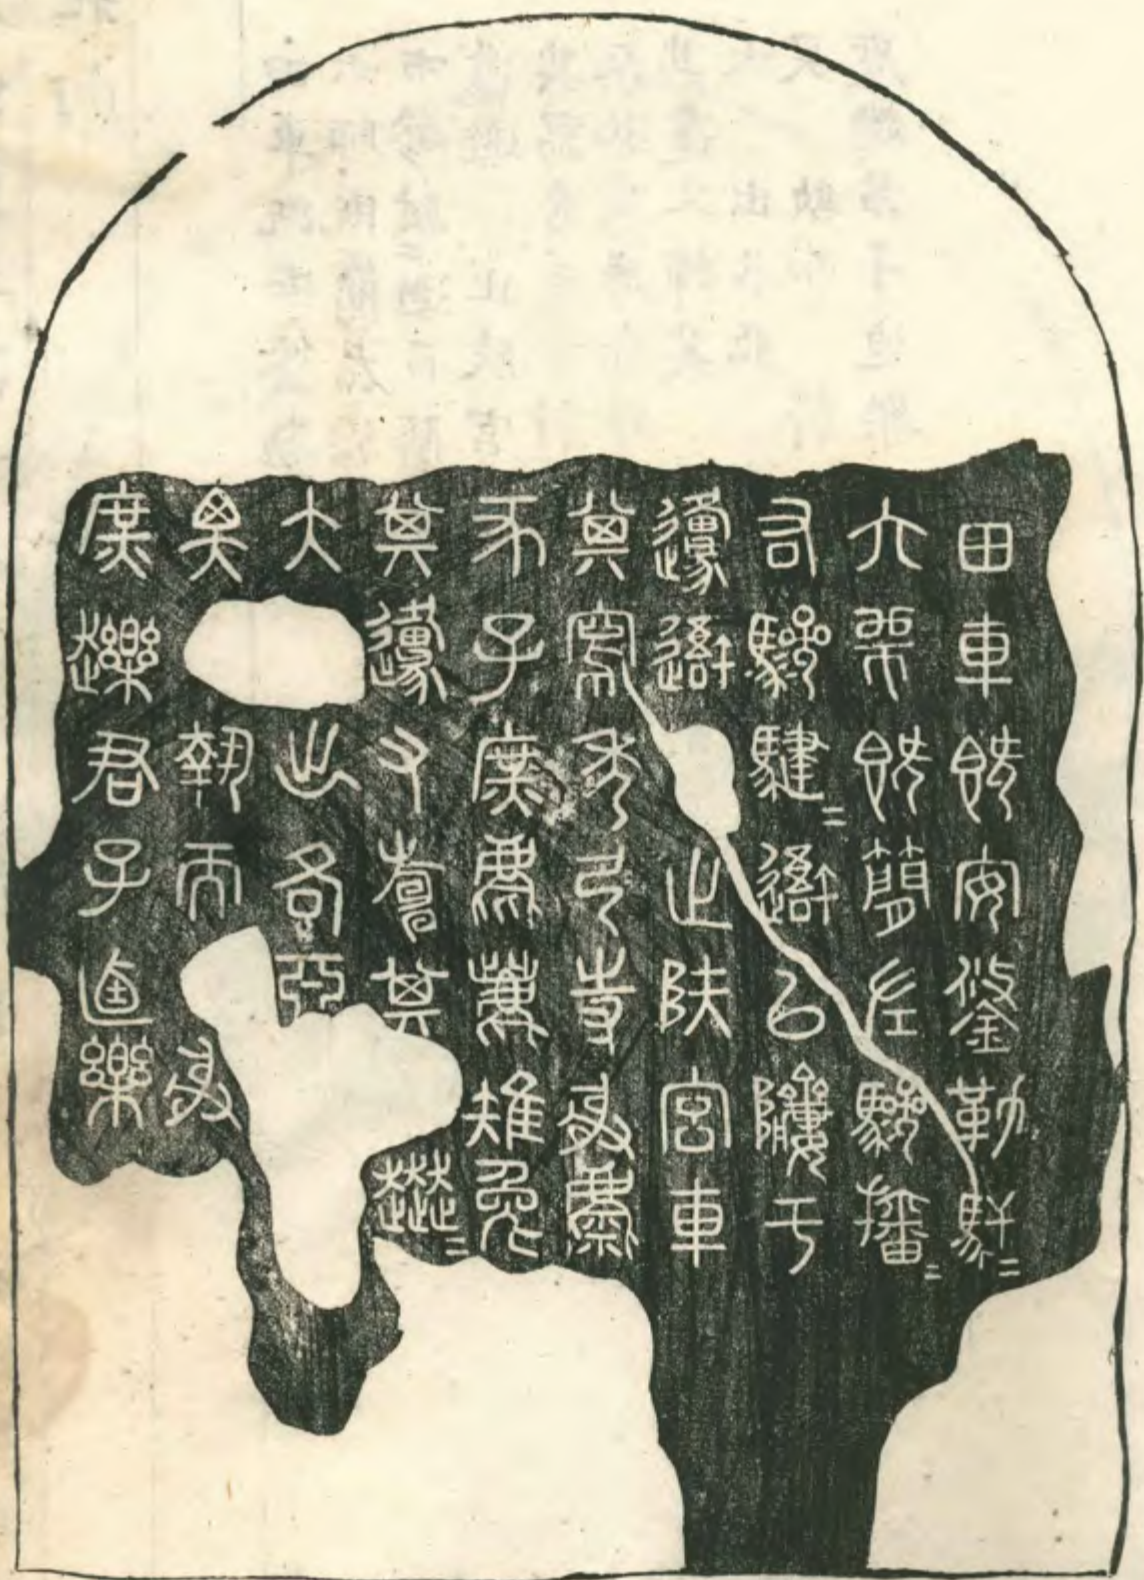 田車既安鋚勒馯=
六師既簡左驂播=
右驂騝=䢔以隮于
邍䢔止陕宮車
其寫秀弓寺射麋
豕孔庶麀鹿雉兔
其邍又紳其
大出各亞
昊執而射
庶趮君子逌樂